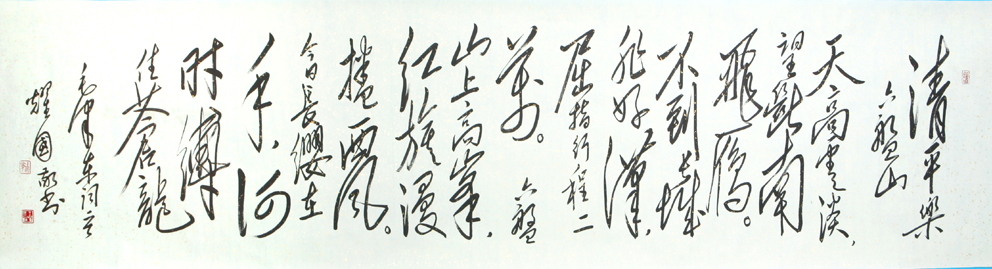 清平樂
六盤山
天高雲淡，
望斷南
飛雁。
不到長城
非好漢，
屈指行程二
萬。六盤
山上高峯，
红旗漫
捲西風。
今日長纓在
手，何
时縛
住苍龍
毛澤東詞
國敬書